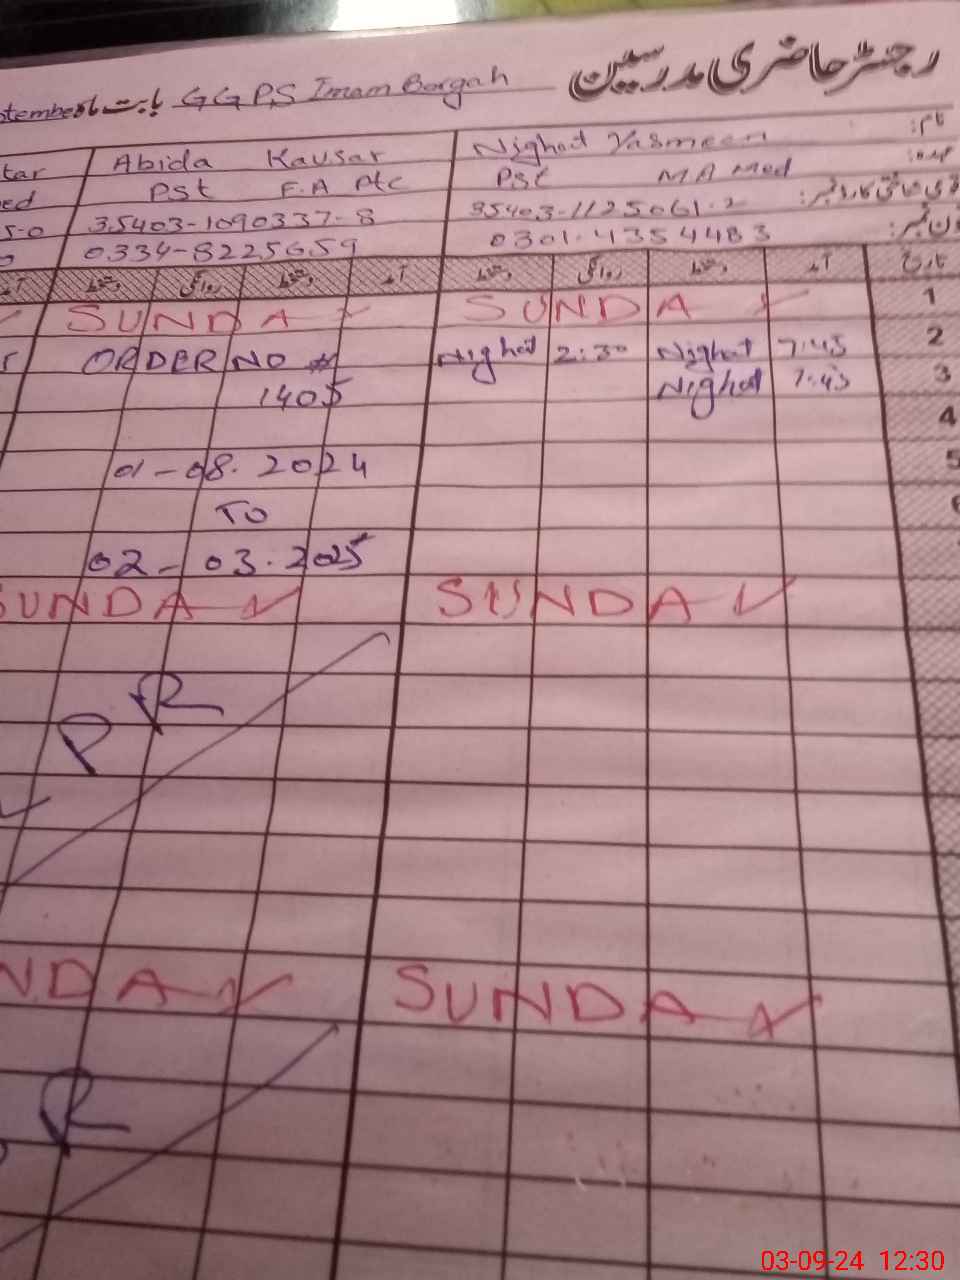 رجسٹر حاضری مدرسین
GGPS Imam Bargah بابت ماہ
نام:
Nighat Yasmeen
Abida Kausar
tar
عہدہ:
Pst M A Med
Pst F.A Ptc
ed
35403-1125061-2
35403-1090337-8
5-0
0301-4354483
0334-8225659
تاریخ آمد دستخط روانگی دستخط آمد دستخط روانگی دستخط
1 SUNDAY SUNDAY
2 7:45 Nighat 2:30 Nighat ORDER NO
3 7:45 Nighat 1405
4
5 01-08.2024
6 TO
02-03.2025
SUNDAY SUNDAY
R
P
SUNDAY NDAY
R
03-09-24 12:30